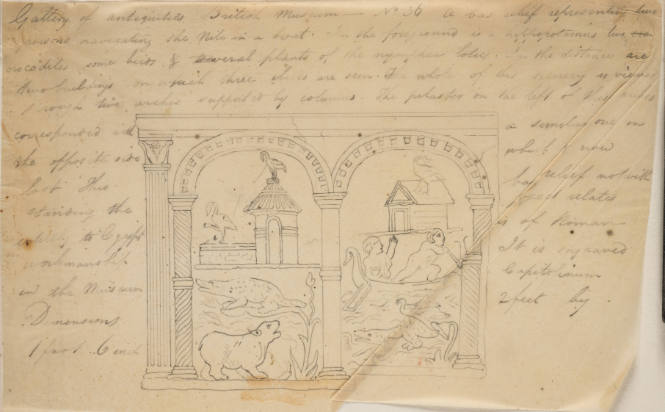 Gallery of antiquities British Museum No 36 A bas relief representing two
persons navigating the Nile in a boat. In the foreground is a hippopotamus two
crocodiles some birds, & several plants of the nymphea lotus. In the distance are
two buildings, on which three Ibis are seen. The whole of this scenery is viewed
through two arches supported by columns. The pilaster on the left of the arches
corresponded with a similar one on
the opposite side which is now
lost This bas relief not with
standing the relates
to Egypt is of Roman
workmanship It is engraved
in the Museum Capitolinum
Dimensions 2 feet by
1 foot 6 inch